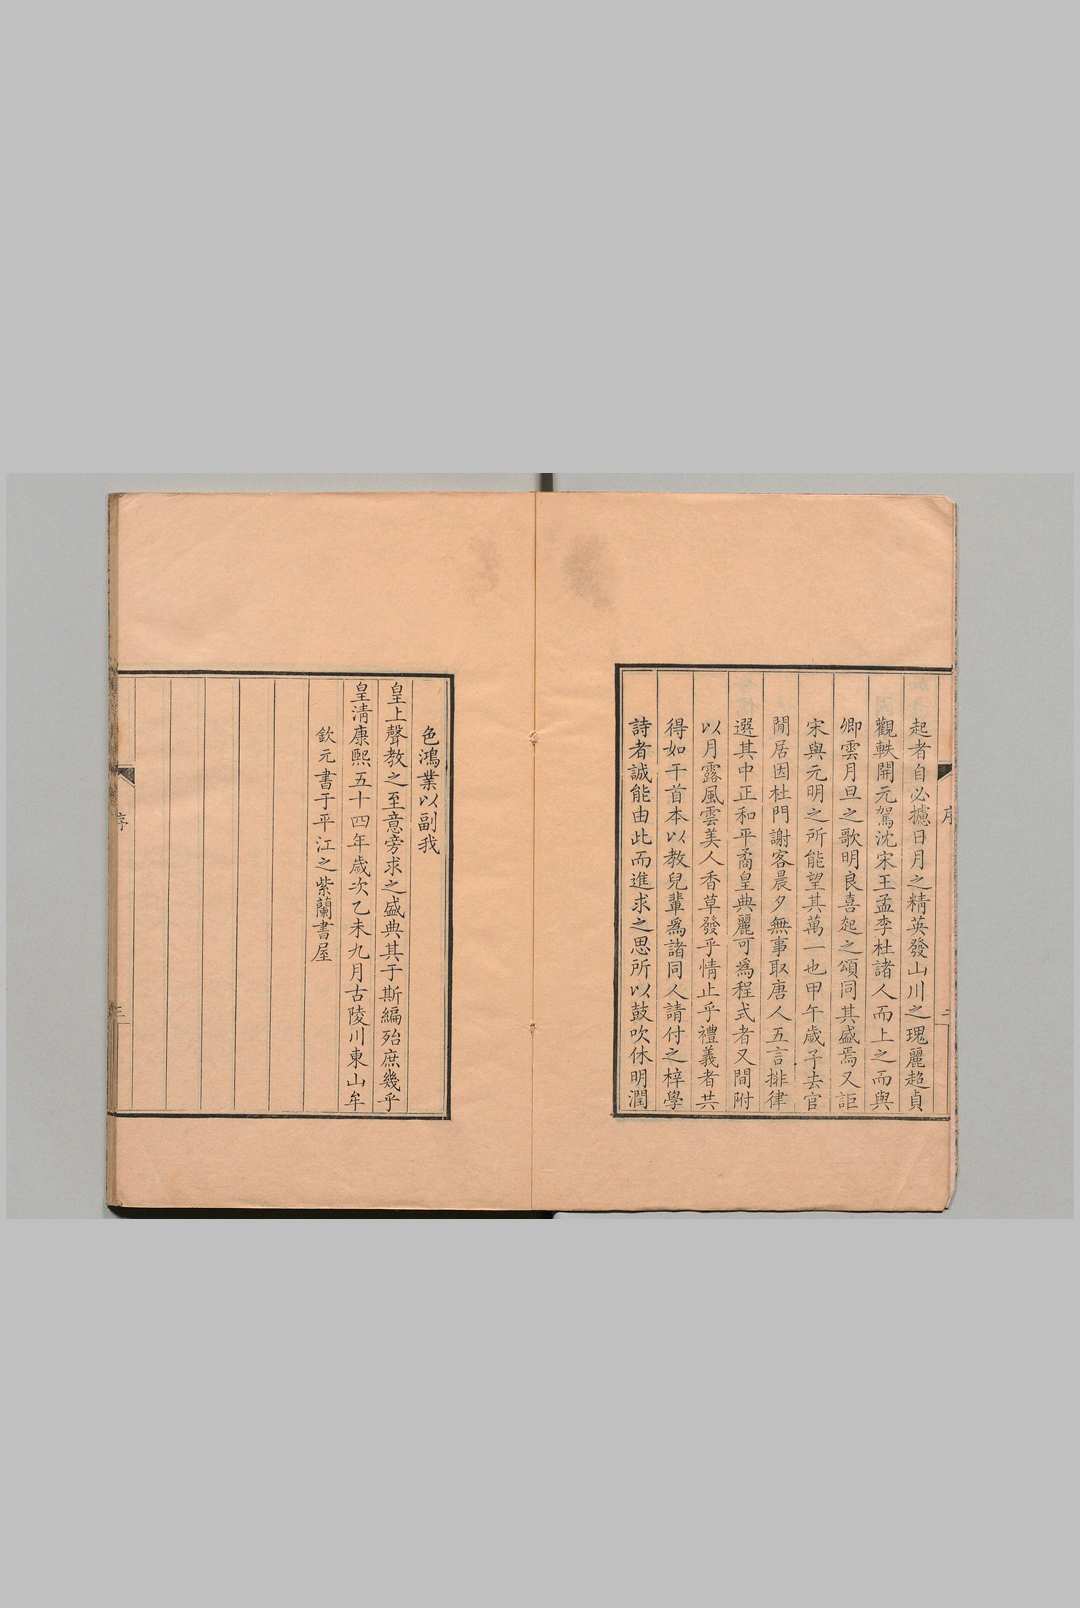 起者自必攄日月之精英發山川之瑰麗超貞
觀軼開元駕沈宋王孟李杜諸人而上之而與
卿雲月旦之歌明良喜起之頌同其盛焉又詎
宋與元明之所能望其萬一也甲午歲予去官
閒居因杜門謝客晨夕無事取唐人五言排律
選其中正和平矞皇典麗可為程式者又間附
以月露風雲美人香草發乎情止乎禮義者共
得如干首本以教兒輩為諸同人請付之梓學
詩者誠能由此而進求之思所以鼓吹休明潤
序
二
色鴻業以副我
皇上聲教之至意旁求之盛典其于斯編殆庶幾乎
皇清康熙五十四年歲次乙未九月古陵川東山牟
欽元書于平江之紫蘭書屋
序
三